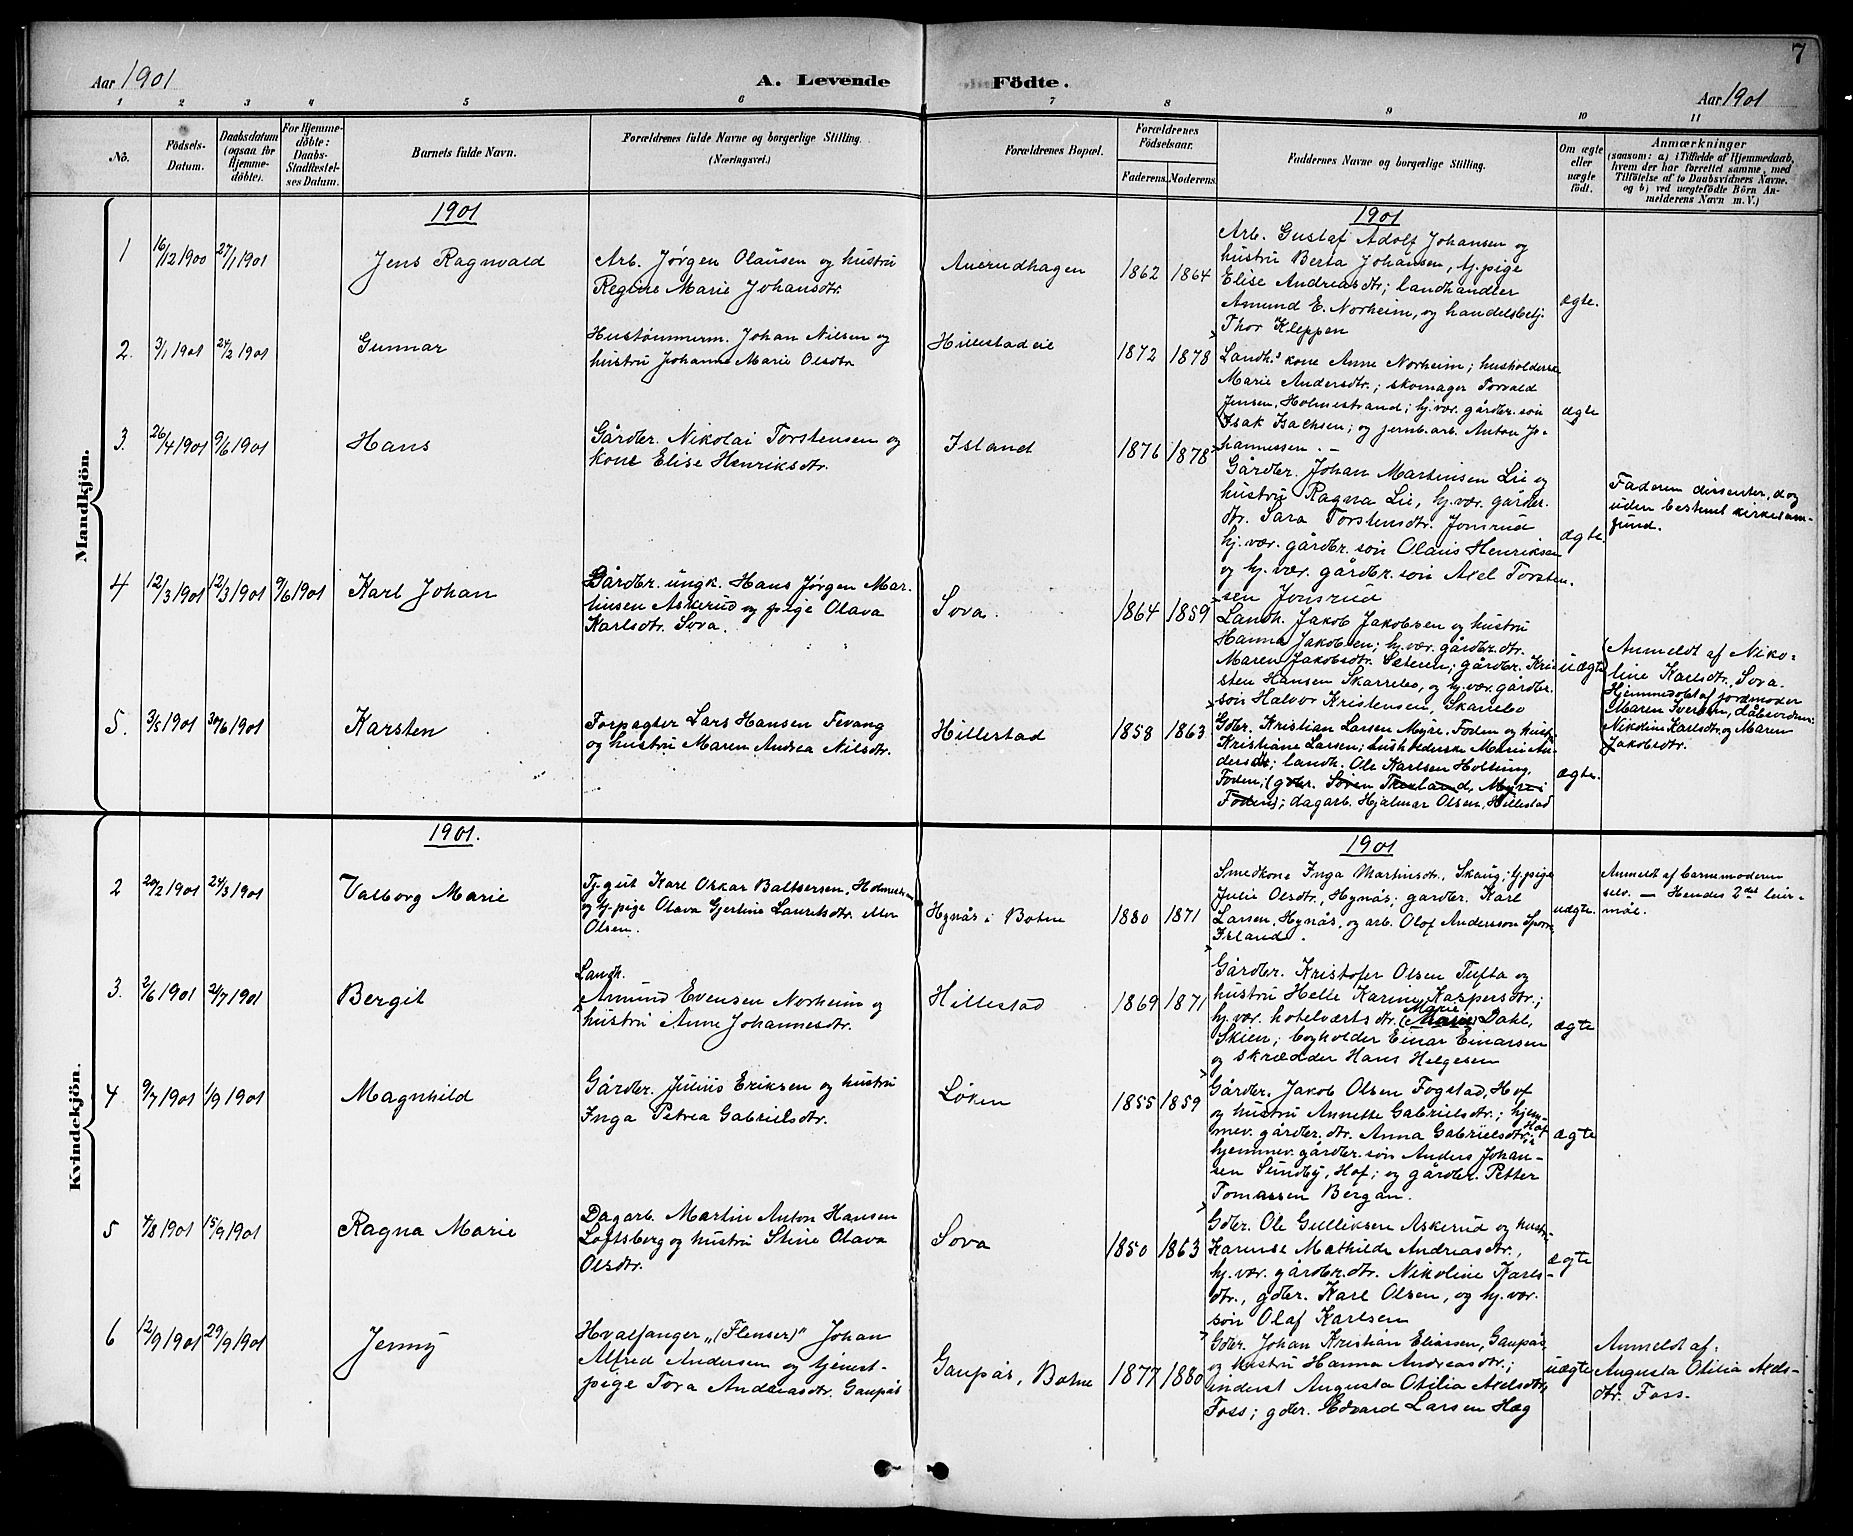 7
Aar 1901
A. Levende
Födte.
Aar 1901
1 2 3 4 5 6 7 8 9 10 11
No.
Födsels-
Datum.
Daabsdatum
(ogsaa for
Hjemme-
döbte).
For Hjemme-
döbte:
Daabs-
Stadfæstel-
ses Datum.
Barnets fulde Navn.
Forældrenes fulde Navne og borgerlige Stilling.
(Næringsvei.)
Forældrenes Bopæl.
Forældrenes
Födselsaar.
Faderens. Moderens.
Faddernes Navne og borgerlige Stilling.
Om ægte
eller
uægte
födt.
Anmærkninger
(saasom: a) i Tilfælde af Hjemmedaab,
hvem der har forrettet samme, med
Tilföielse af to Daabsvidners Navne,
og b) ved uægtefödte Börn An-
melderens Navn m. V.)
Mandkjön.
1901
1901
1
16/12 1900
27/1 1901
Jens Ragnvald
Arb. Jørgen Olausen og hustru
Regine Marie Johansdtr.
Auerudhagen
1862
1864
Arb. Gustaf Adolf Johansen og
hustru Berta Johansen, tj. pige
Elise Andreasdtr; landhandler
Amund E. Norheim, og handelsbetj.
Thor Kleppen
ægte.
2.
3/1 1901
24/2 1901
Gunnar
Hustømmerm. Johan Nilsen og
hustru Johanne Marie Olsdtr
Hillestadeie
1872
1878
Landh.s kone Anne Norheim; husholderske
Marie Andersdtr.; skomager Torvald
Jensen, Holmestrand; hj. vær. gårdbr. søn
Isak Isachsen; og jernb. arb. Anton Jo-
hannessen. –
ægte
3.
26/4 1901
9/6 1901
Hans
Gårdbr. Nikolai Torstensen og
kone Elise Henriksdtr.
Island
1876
1878
Gårdbr. Johan Martinsen Lie og
hustru Ragna Lie, hj. vær. gårdbr.
dtr. Sara Torstensdtr. Jonsrud
hj. vær. gårdbr. søn Olaus Henriksen
og hj. vær. gårdbr. søn Axel Torsten-
sen Jonsrud
ægte.
Faderen dissenter, dog
uden bestemt kirkesam-
fund.
4
12/3 1901
12/3 1901
9/6 1901
Karl Johan
Gårdbr. ungk. Hans Jørgen Mar-
tinsen Askerud og pige Olava
Karlsdtr. Sova.
Sova.
1864
1859
Landh. Jakob Jakobsen og hustru
Hanna Jakobsen; hj. vær. gårdbr. dtr.
Maren Jakobsdtr. Sæteren; gårdbr. Kri-
sten Hansen Skarrebo, og hj. vær. gårdbr.
søn Halvor Kristensen, Skarrebo
uægte
Anmeldt af Niko-
line Karlsdtr. Sova.
Hjemmedøbt af jordmoder
Maren Iversen, dåbsvidner:
Nikoline Karlsdtr. og Maren
Jakobsdtr.
5.
3/5 1901
30/6 1901
Karsten
Forpagter Lars Hansen Fevang
og hustru Maren Andrea Nilsdtr.
Hillestad
1858
1863
Gdbr. Kristian Larsen Myre, Foden og hust.
Kristiane Larsen; husholderske Marie An-
dersdtr; landh. Ole Karlsen Holtung,
Foden; (gdbr. Søren
Foden); dagarb. Hjalmar Olsen, Hillestad
ægte.
Kvindekjön.
1901.
1901
2
20/2 1901
24/3 1901
Valborg Marie
Tj. gut Karl Oskar Baltsersen, Holmestr.
og tj. pige Olava Gjertine Lauritsdtr. eller
Olsen.
Hynås i Botne
1880
1871
Smedkone Inga Martinsdtr, Skaug; tj. pige
Julie Olsdtr., Hynås; gårdbr. Karl
Larsen, Hynås, og arb. Olof Anderson
Island.
uægte.
Anmeldt af barnemoderen
selv. – Hendes 2det leier-
mål.
3.
2/6 1901
21/7 1901
Bergit
Landh.
Amund Evensen Norheim og
hustru Anne Johannesdtr.
Hillestad
1869
1871
Gårdbr. Kristofer Olsen Tufta og
hustru Helle Karine Kaspersdtr.;
hj. vær. hotelværts dtr. (Maren) Marie Dahl,
Skien; bogholder Einar Einarsen
og skrædder Hans Helgesen
ægte
4
9/7 1901
1/9 1901
Magnhild
Gårdbr. Julius Eriksen og hustru
Inga Petrea Gabrielsdtr.
Løken
1855
1859
Gårdbr. Jakob Olsen Fogstad, Hof
og hustru Annette Gabrielsdtr.; hjem-
mev. gårdbr. dtr. Anna Gabrielsdtr. Hof;
hjemmev. gårdbr. søn Anders Johan-
sen Sundby, Hof; og gårdbr. Petter
Tomassen Bergan.
ægte
5
4/8 1901
15/9 1901
Ragna Marie
Dagarb. Martin Anton Hansen
Loftsberg og hustru Stine Olava
Olsdtr.
Sova
1850
1863
Gdbr. Ole Gulliksen Askerud og hustr.
Karense Mathilde Andreasdtr.,
hj. vær. gårdbr. dtr. Nikoline Karls-
dtr., gdbr. Karl Olsen, og hj. vær.
søn Olaf Karlsen
ægte
6
12/9 1901
29/9 1901
Jenny
Hvalfanger „(Flenser)" Johan
Alfred Andersen og tjenest-
pige Tora Andreasdtr. Gaupås
Gaupås, Botne
1877
1880
Gdbr. Johan Kristian Eliassen, Gaupås
og hustru Hanna Andreasdtr.;
inderst Augusta Otilia Axelsdtr,
Foss; gdbr. Edvard Larsen Hæg
uægte
Anmeldt af.
Augusta Otilia Axels-
dtr. Foss.